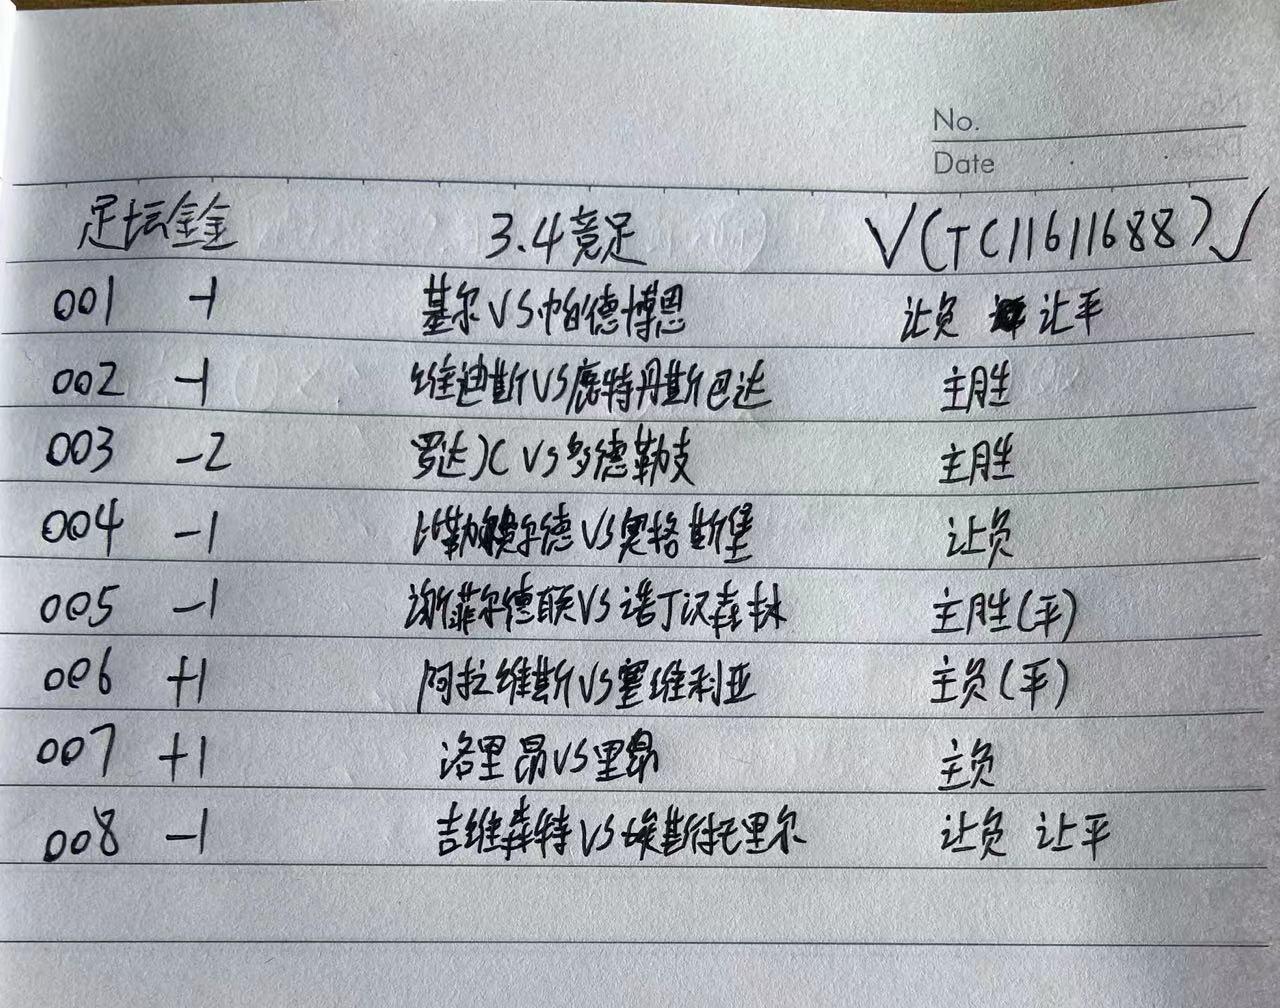 No.
Date
足坛金金 3.4竞足 V(TC11611688)√
001 -1 基尔VS帕德博恩 让负 让平
002 -1 维迪斯VS鹿特丹斯巴达 主胜
003 -2 罗达JC VS多德勒支 主胜
004 -1 比勒费尔德VS奥格斯堡 让负
005 -1 谢菲尔德联VS诺丁汉森林 主胜(平)
006 +1 阿拉维斯VS塞维利亚 主负(平)
007 +1 洛里昂VS里昂 主负
008 -1 吉维森特VS埃斯托里尔 让负 让平